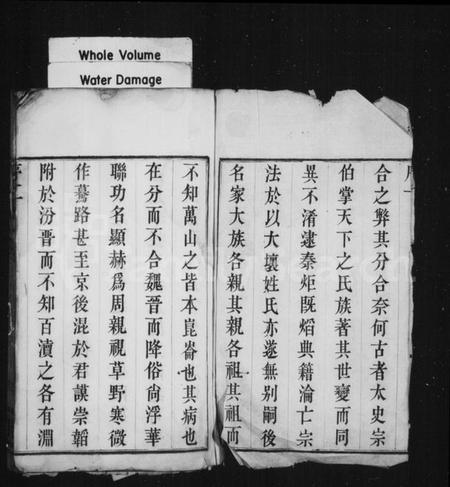 Whole Volume
Water Damage
合之弊其分合奈何古者太史宗
伯掌天下之氏族著其世變而同
異不淆逮秦炬既熖典籍淪亡宗
法於以大壞姓氏亦遂無别嗣後
名家大族各親其親各祖其祖而
不知萬山之皆本崑崙也其病也
在分而不合魏晉而降俗尚浮華
聯功名顯赫爲周親視草野寒微
作驀路甚至京後混於君謨崇韜
附於汾晋而不知百瀆之各有淵